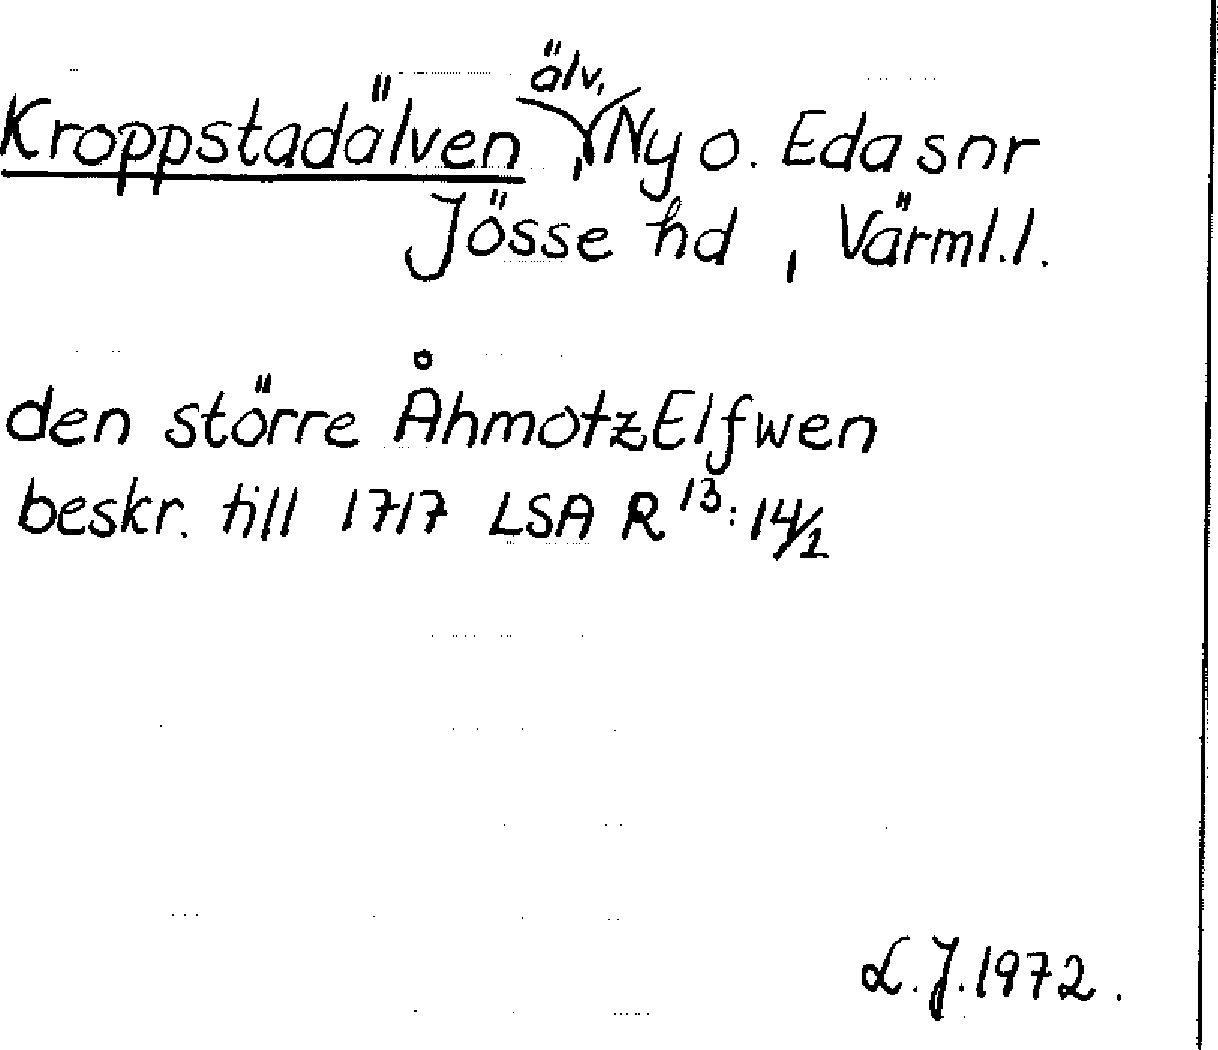 Kroppstadälven, älv, Ny o. Eda snr
Jösse hd, Värml.l.
den större ÅhmotzElfwen
beskr. till 1717 LSA R 13:14/1
L.J. 1972.